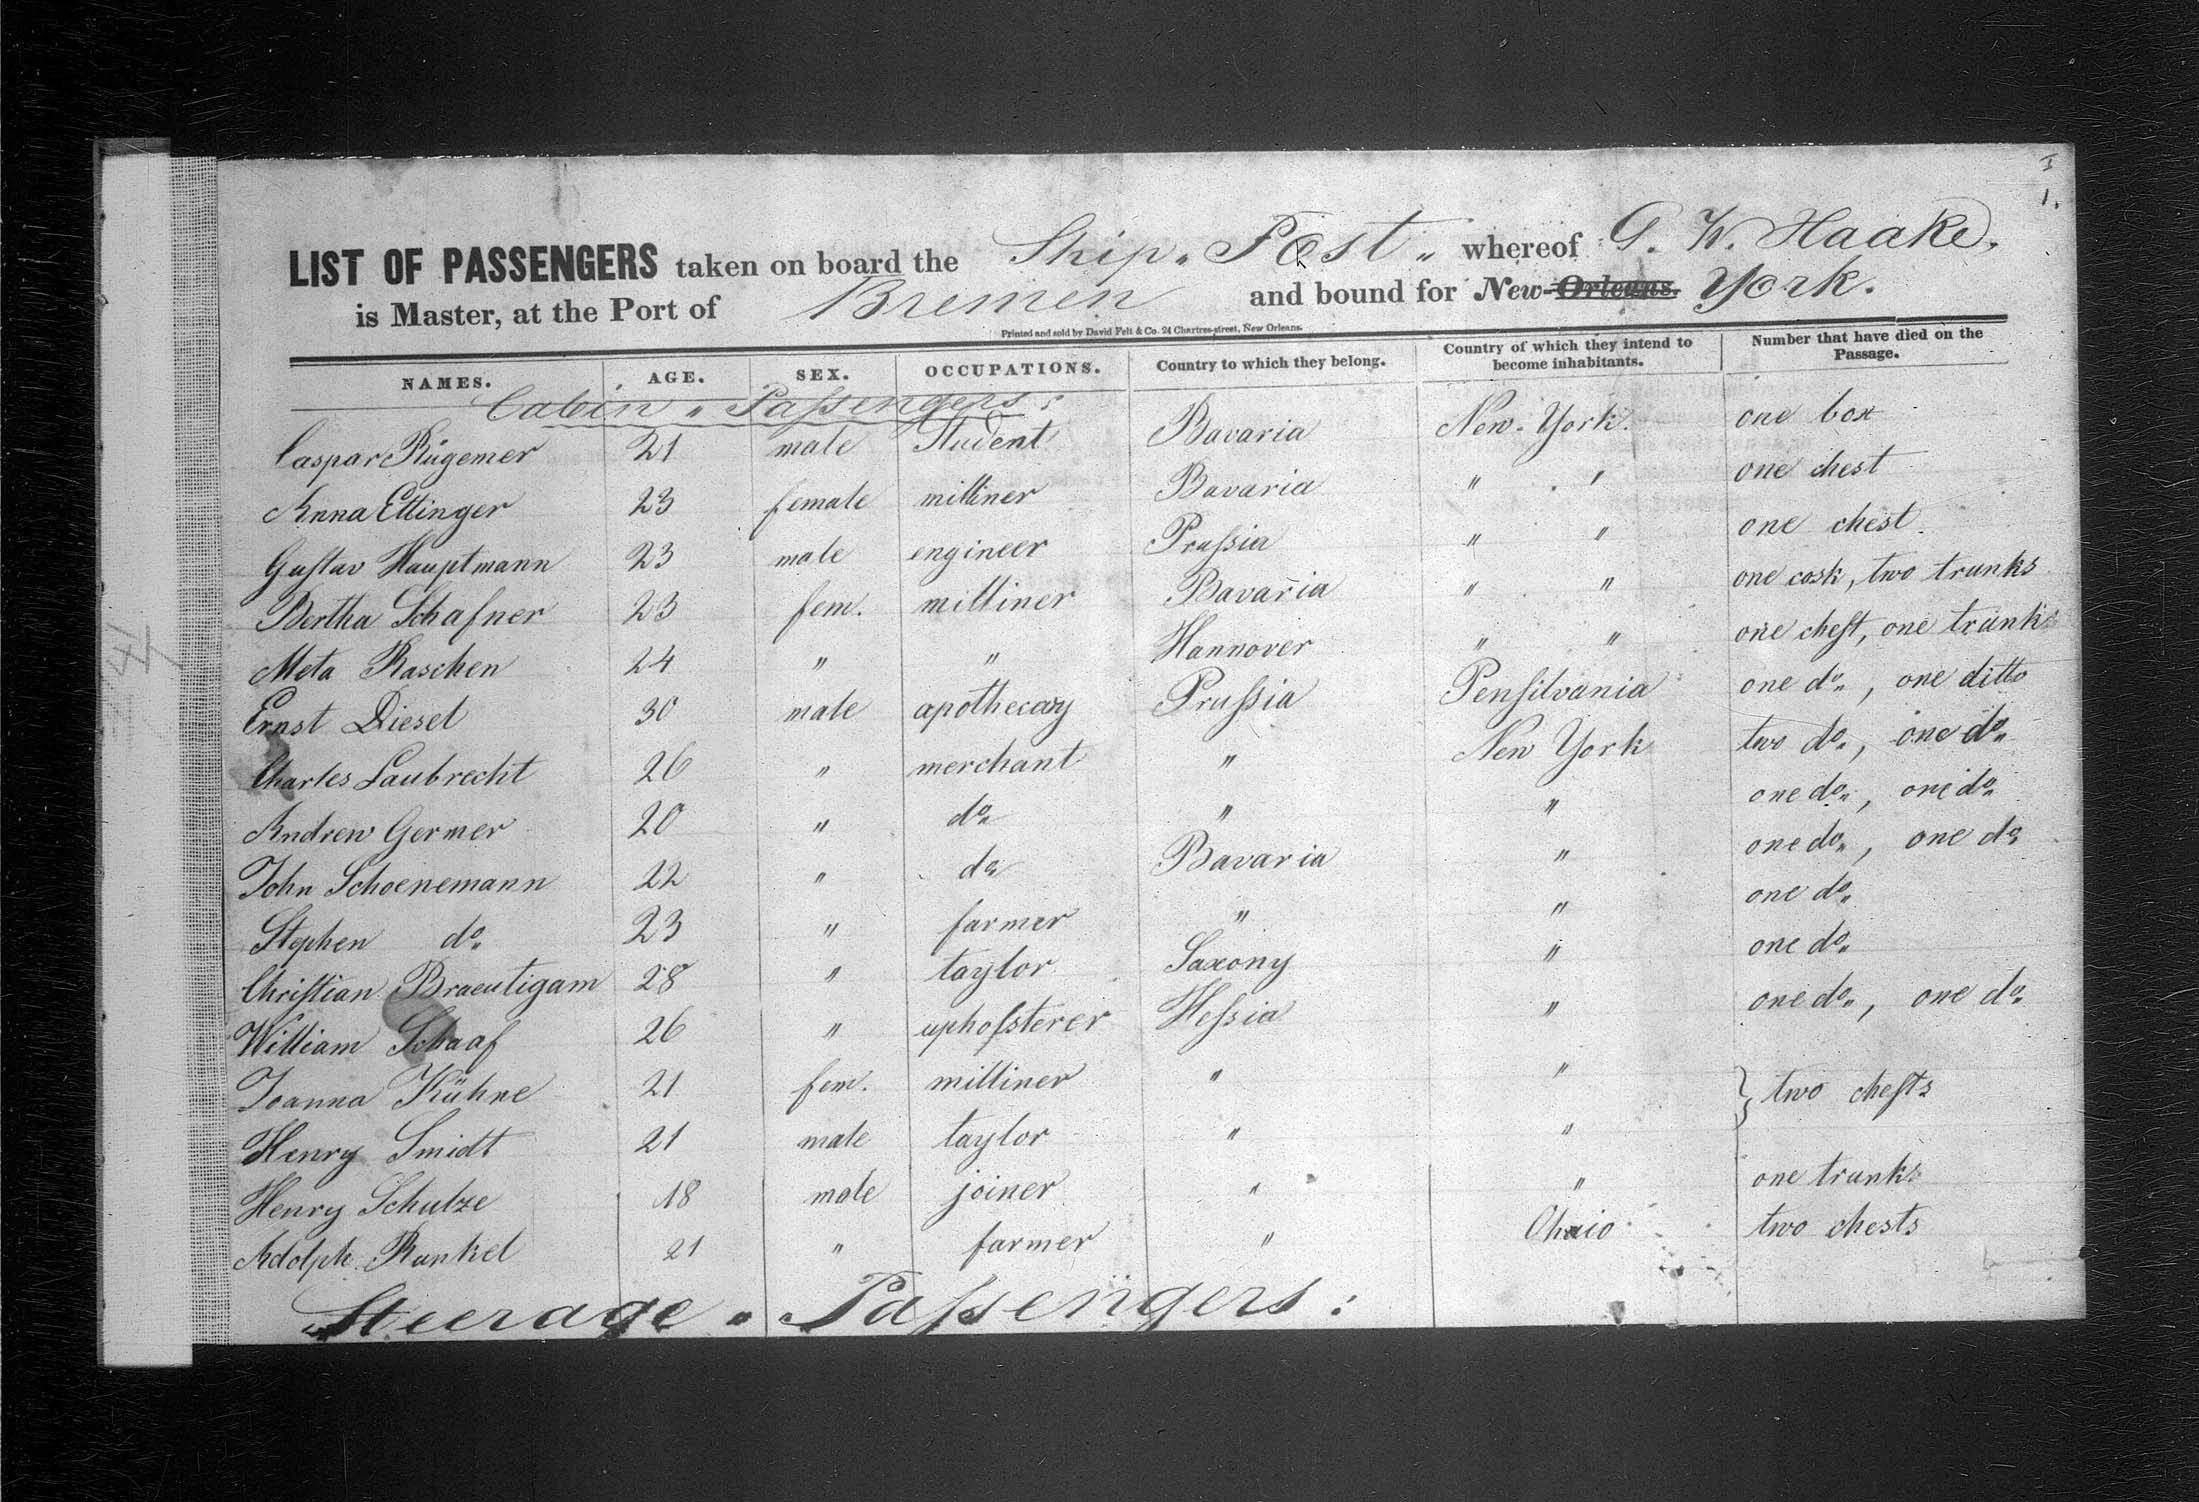 I
1.
LIST OF PASSENGERS taken on board the Ship „Post„ whereof G. W. Haake,
is Master, at the Port of Bremen and bound for New-Orleans. York.
Printed and sold by David Felt & Co. 24 Chartres-street, New Orleans.
NAMES. AGE. SEX. OCCUPATIONS. Country to which they belong. Country of which they intend to become inhabitants. Number that have died on the Passage.
Cabin „ Passengers:
Caspar Rügemer 21 male Student Bavaria New-York. one box
Anna Ettinger 23 female milliner Bavaria " " one chest
Gustav Hauptmann 23 male engineer Prussia " " one chest.
Bertha Schafner 23 fem. milliner Bavaria " " one cask, two trunks
Meta Raschen 24 " " Hannover " " one chest, one trunk
Ernst Diesel 30 male apothecary Prussia Pensilvania one do„, one ditto
Charles Laubrecht 26 " merchant " New York two do„, one do„
Andrew Germer 20 " do„ " " one do„, one do„
John Schoenemann 22 " do Bavaria " one do„, one do
Stephen do„ 23 " farmer " " one do„
Christian Braeutigam 28 " taylor Saxony " one do„
William Schaaf 26 " upholsterer Hessia " one do„, one do„
Joanna Kühne 21 fem. milliner " " } two chests
Henry Smidt 21 male taylor " "
Henry Schulze 18 male joiner " " one trunk
Adolph Runkel 21 " farmer " Ohaio two chests
Steerage „ Passengers: